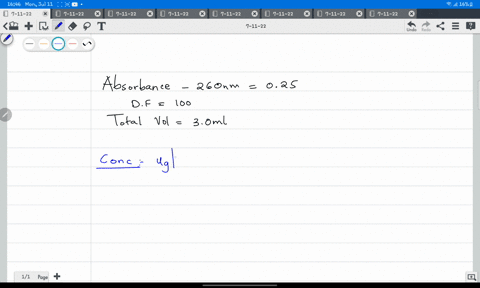 16:46 Mon, Jul 11
7-11-22 7-11-22 7-11-22 7-11-22 7-11-22 7-11-22 7-11-22
7-11-22
Undo Redo
Absorbance - 260nm = 0.25
D.F = 100
Total Vol = 3.0ml
Conc = ug|
1/1 Page